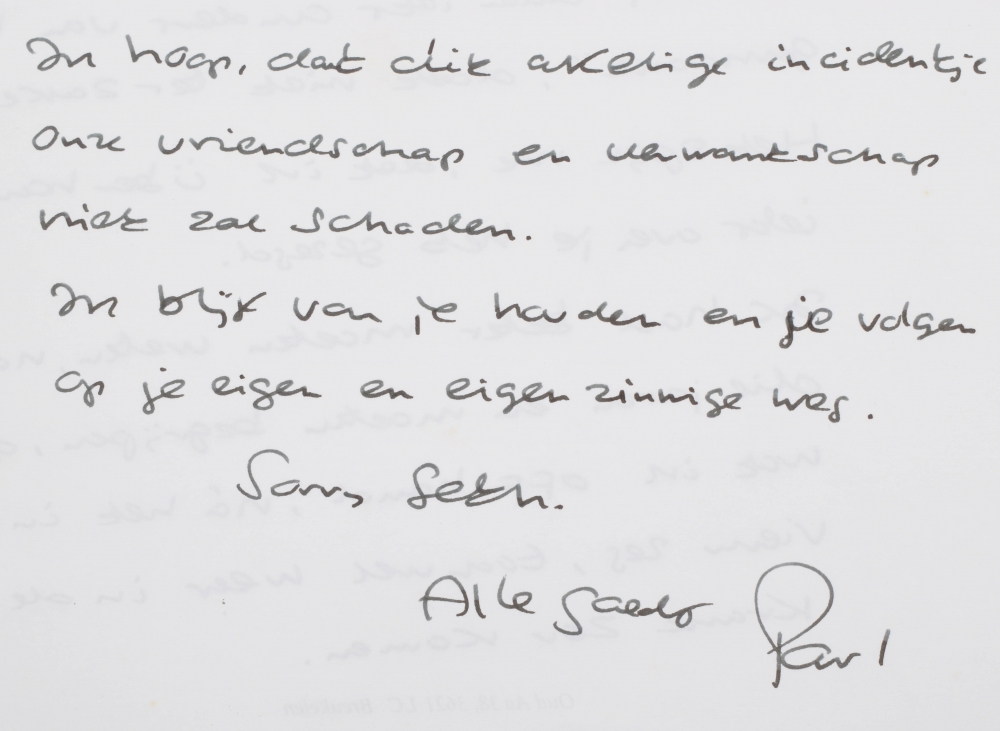 In hoop, dat dit akelige incidentje
onze vriendschap en verwantschap
niet zal schaden.
Ik blijf van je houden en je volgen
op je eigen en eigenzinnige weg.
Sorry Seth.
Alle goeds
Paul